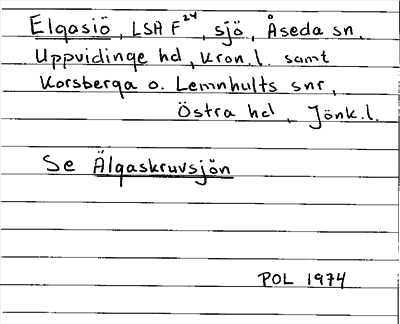 Elgasiö, LSA F²⁴, sjö, Åseda sn.
Uppvidinge hd, Kron.l. samt
Korsberga o. Lemnhults snr,
Östra hd, Jönk.l.
Se Älgaskruvsjön
POL 1974